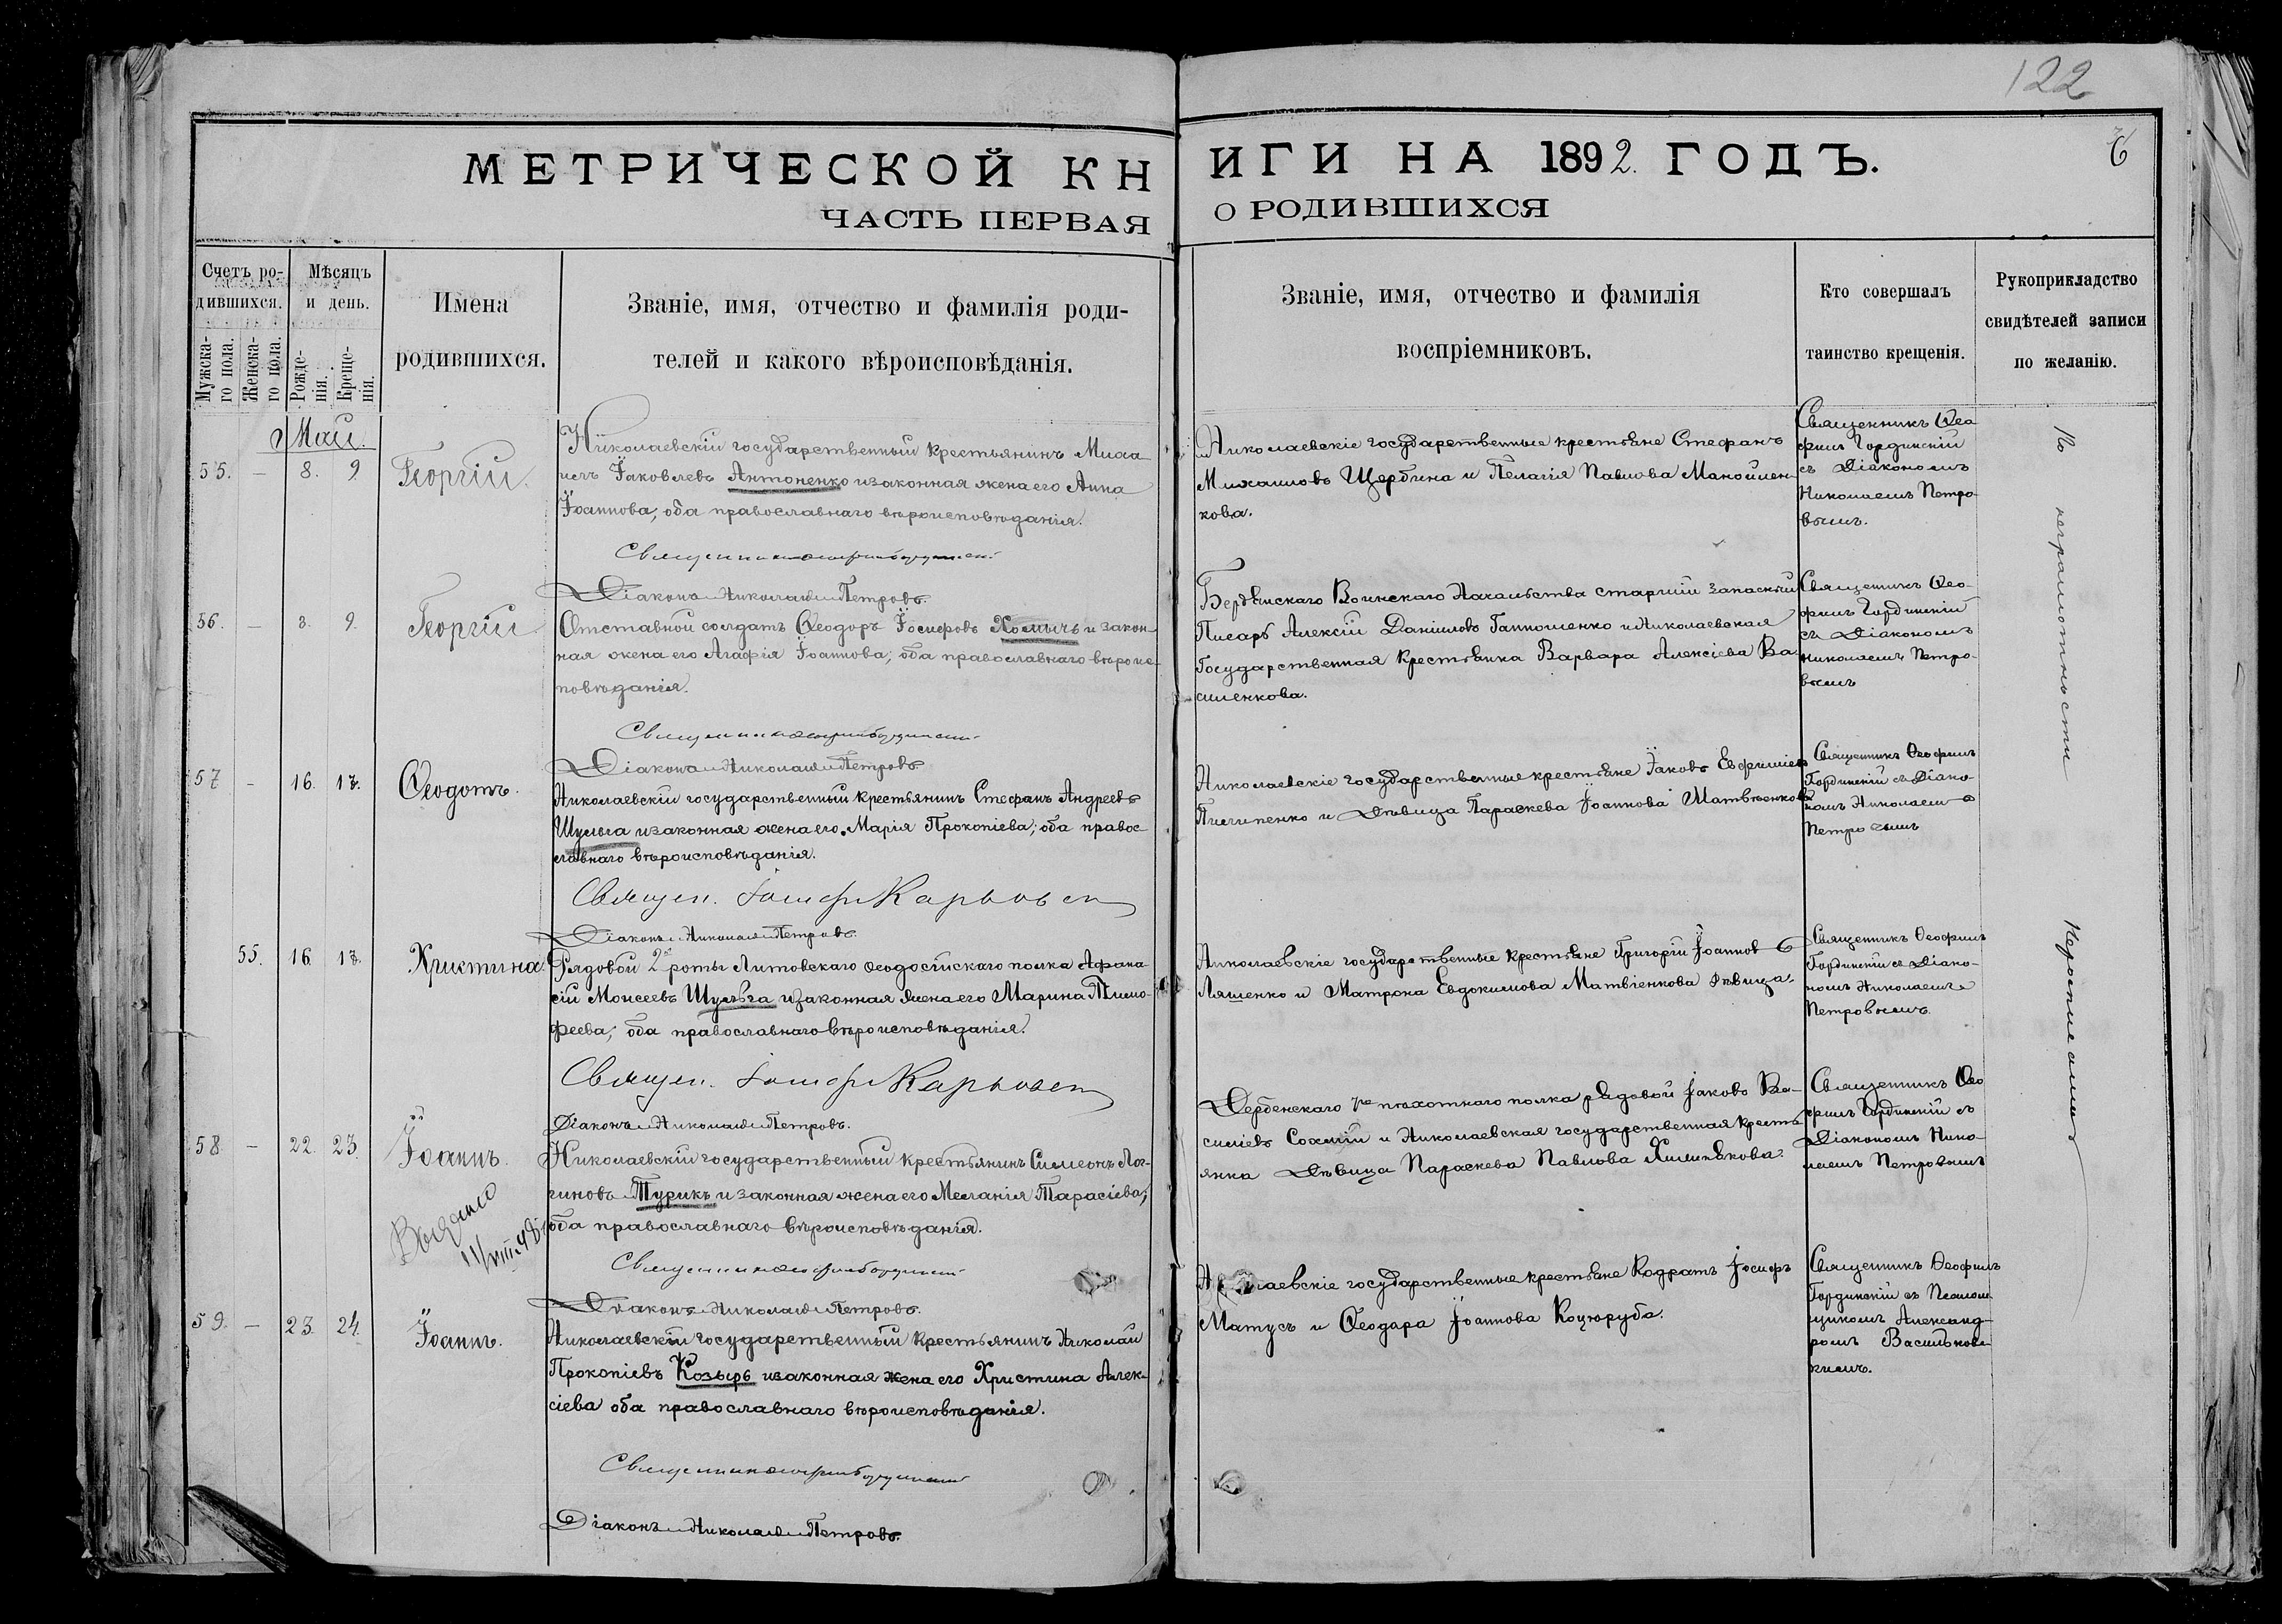 122
6
МЕТРИЧЕСКОЙ КНИГИ НА 1892 ГОДЪ.
ЧАСТЬ ПЕРВАЯ О РОДИВШИХСЯ
Счетъ ро-
дившихся.
Мужска-
го пола.
Женска-
го пола.
Мѣсяцъ
и день.
Рожде-
нія.
Креще-
нія.
Имена
родившихся.
Званіе, имя, отчество и фамилія роди-
телей и какого вѣроисповѣданія.
Званіе, имя, отчество и фамилія
воспріемниковъ.
Кто совершалъ
таинство крещенія.
Рукоприкладство
свидѣтелей записи
по желанію.
Май.
55. — 8. 9 Георгій.
Николаевскій государственный крестьянинъ Миха
илъ Іаковлевъ Антоненко и законная жена его Анна
Іоаннова; оба православнаго вѣроисповѣданія.
Діаконъ Николай Петровъ.
Николаевскіе государственные крестьяне Стефанъ
Михаиловъ Щербина и Пелагія Павлова Манойлен
кова.
Священникъ Ѳео
филъ Гординскій
съ Діакономъ
Николаемъ Петро
вымъ.
56. — 8. 9. Георгій
Отставной солдатъ Ѳеодоръ Іосифовъ Хомичъ и закон
ная жена его Агафія Іоаннова; оба православнаго вѣроис
повѣданія.
Діаконъ Николай Петровъ
Бердянскаго Воинскаго Начальства старшій запасный
Писарь Алексій Даніиловъ Гапоненко и Николаевская
Государственная крестьянка Варвара Алексіева Ва
силенкова.
Священникъ Ѳео-
филъ Гординскій
съ Діакономъ
Николаемъ Петро-
вымъ
57 — 16. 17. Ѳеодотъ.
Николаевскій государственный крестьянинъ Стефанъ Андреевъ
Шульга и законная жена его Марія Прокопіева; оба правос-
лавнаго вѣроисповѣданія.
Священ. Іосиф Карповъ
Діаконъ Николай Петровъ.
Николаевскіе государственные крестьяне Іаковъ Евфиміевъ
и дѣвица Параскева Іоаннова Матвѣенкова
Священникъ Ѳеофилъ
Гординскій съ Діако-
номъ Николаемъ
Петровымъ
55. 16 17. Христина.
Рядовой 2й роты Литовскаго Ѳеодосійскаго полка Афана-
сій Моисеевъ Шульга и законная жена его Марина Тимо-
феева; оба православнаго вѣроисповѣданія.
Священ. Іосиф Карповъ
Діаконъ Николай Петровъ.
Николаевскіе государственные крестьяне Григорій Іоанновъ
Ляшенко и Матрона Евдокимова Матвіенкова дѣвица.
Священникъ Ѳеофилъ
Гординскій съ Діако-
номъ Николаемъ
Петровымъ.
58 — 22. 23. Іоаннъ.
Выдано
Николаевскій государственный крестьянинъ Симеонъ Лог-
гиновъ Турикъ и законная жена его Меланія Тарасіева;
оба православнаго вѣроисповѣданія.
Діаконъ Николай Петровъ.
Дербенскаго пѣхотнаго полка рядовой Іаковъ Ва-
силіевъ и Николаевская государственная кресть
янка дѣвица Параскева Павлова
Священникъ Ѳео
филъ Гординскій съ
Діакономъ Нико-
лаемъ Петровымъ
59. — 23. 24. Іоаннъ.
Николаевскій государственный крестьянинъ Николай
Прокопіевъ Козырь и законная жена его Христина Алек-
сіева оба православнаго вѣроисповѣданія.
Діаконъ Николай Петровъ.
Николаевскіе государственные крестьяне Кодратъ Іосифъ
Матусъ и Ѳеодора Іоаннова Коцюруба.
Священникъ Ѳеофилъ
Гординскій съ Псалом
щикомъ Александ-
ромъ Васильков-
кимъ.
По неграмотности